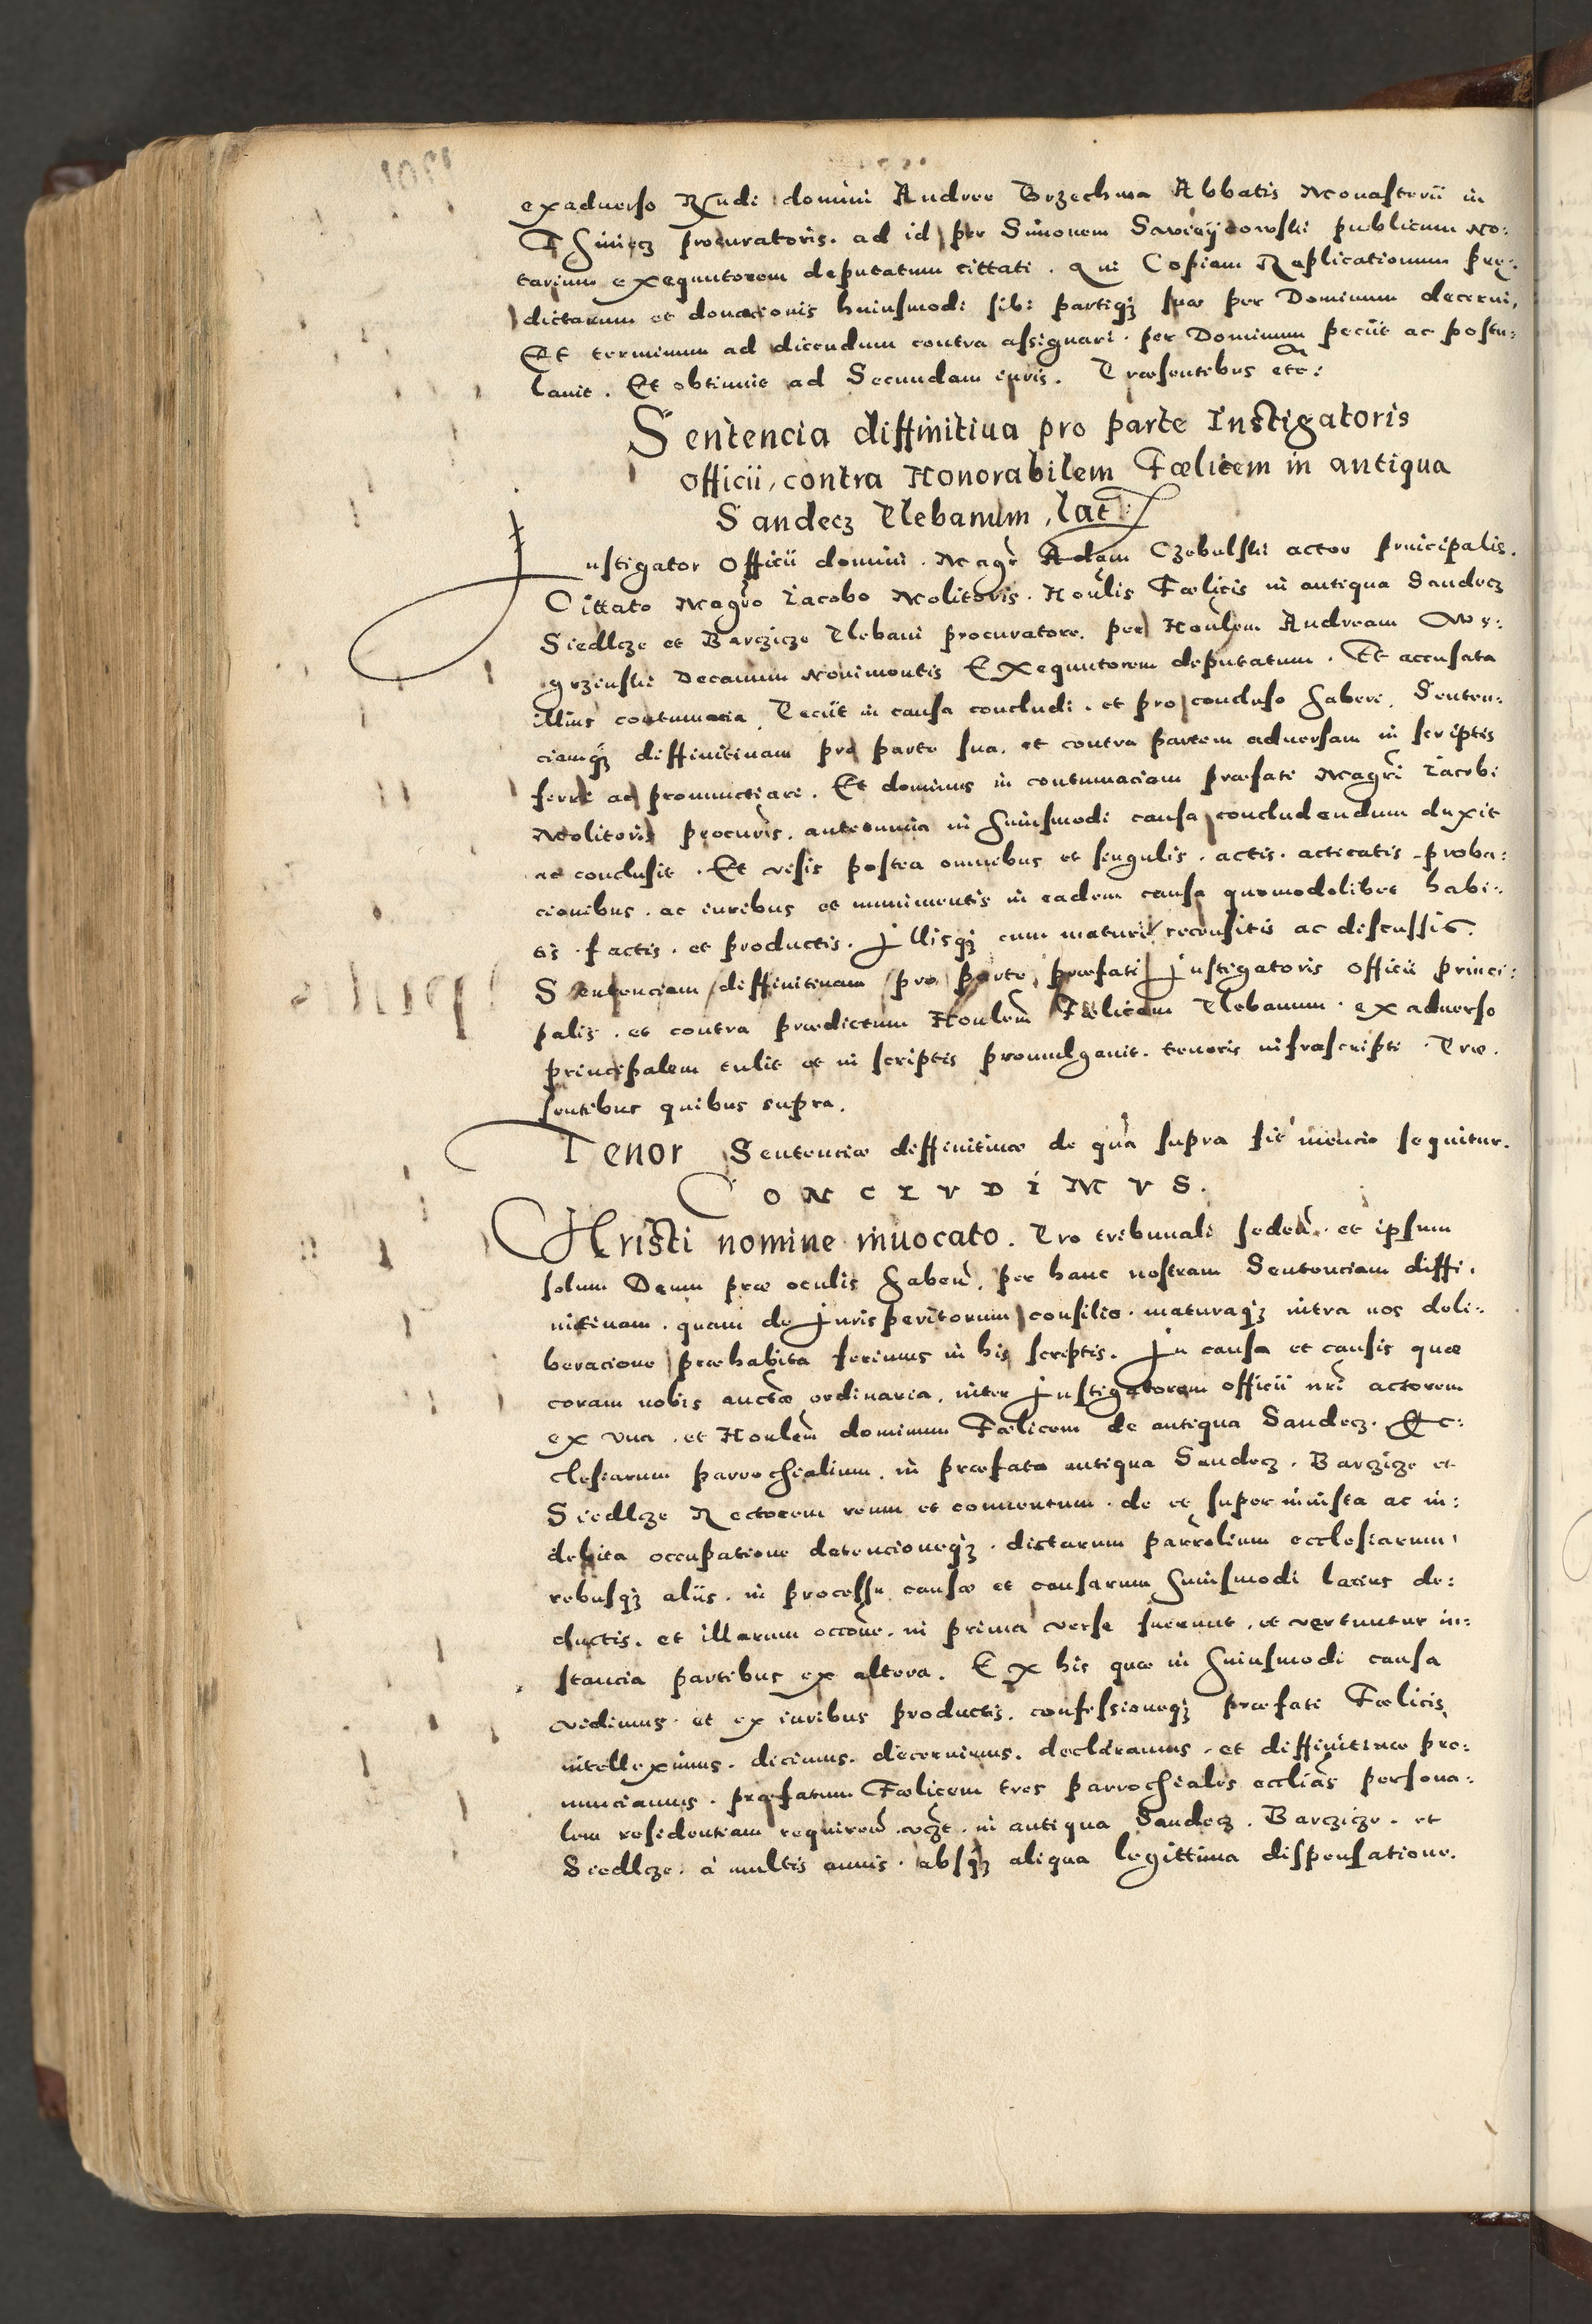 exaduerso Rndi domini Andree Brzechwa Abbatis Monasterii in
Thiniecz procuratoris. ad id per Simonem publicum no:
tarium exequutorem deputatum cittati. Qui Copiam Replicationum pre:
dictarum et donacionis huiusmodi sibi partiqz suæ per Dominum decerni,
Et terminum ad dicendum contra assignari. per Dominum peciit ac postu:
lauit. Et obtinuit ad Secundam iuris. Præsentibus etc:
Sentencia diffinitiua pro parte Instigatoris
officii, contra Honorabilem Fœlicem in antiqua
Sandecz Plebanum, lat:
Instigator Officii domini. Magr Adam Czebulski actor principalis.
Cittato Magro Iacobo Molitoris. Honlis Fœlicis in antiqua Sandecz
Siedlcze et Barczicze Plebani procuratore. per Honlem Andream We:
grzinski Decanum Nouimontis Exequutorem deputatum. Et accusata
illius contumacia. Peciit in causa concludi. et pro concluso haberi. Senten:
ciamqz diffinitiuam pro parte sua. et contra partem aduersam in scriptis
ferri ac pronunctiari. Et dominus in contumaciam præfati Magri Iacobi
Molitoris procuris. anteomnia in huiusmodi causa concludendum duxit
ac conclusit. Et visis postea omnibus et singulis. actis. acticatis. proba:
cionibus. ac iuribus et munimentis in eadem causa quomodolibet habi:
tis. factis. et productis. Illisqz cum mature recensitis ac discussis.
Sentenciam diffinitiuam pro parte præfati Instigatoris officii princi:
palis. et contra prædictum Honlem Fœlicem Plebanum. ex aduerso
principalem tulit et in scriptis promulgauit. tenoris infrascripti. Præ.
sentibus quibus supra.
Tenor Sentenciæ diffinitiuæ de qua supra fit mencio sequitur.
CONCLVDIMVS.
CHristi nomine inuocato. Pro tribunali seden. et ipsum
solum Deum præ oculis haben. per hanc nostram Sentenciam diffi.
nitiuam. quam de Iurisperitorum consilio. maturaqz intra nos deli:
beracione præhabita ferimus in his scriptis. In causa et causis quæ
coram nobis auctte ordinaria. inter Instigatorem officii nri actorem
ex vna. et Honlem dominum Fœlicem de antiqua Sandecz. Ec:
clesiarum parrochialium. in præfata antiqua Sandecz. Barczicze et
Siedlcze Rectorem reum et conuentum. de et super iniusta ac in:
debita occupatione detencioneqz. dictarum parrolium ecclesiarum,
rebusqz aliis. in processu causæ et causarum huiusmodi latius de:
ductis. et illarum occone. in prima verse fuerunt. et vertuntur in:
stancia partibus ex altera. Ex his quæ in huiusmodi causa
vidimus. et ex iuribus productis. confessioneqz præfati Fœlicis
intelleximus. dicimus. decernimus. declaramus. et diffinitiue pro:
nunciamus. præfatum Fœlicem tres parrochiales ecclias persona:
lem residentiam requiren. vczt. in antiqua Sandecz. Barczicze. et
Siedlcze. à multis annis. absqz aliqua legittima dispensatione.